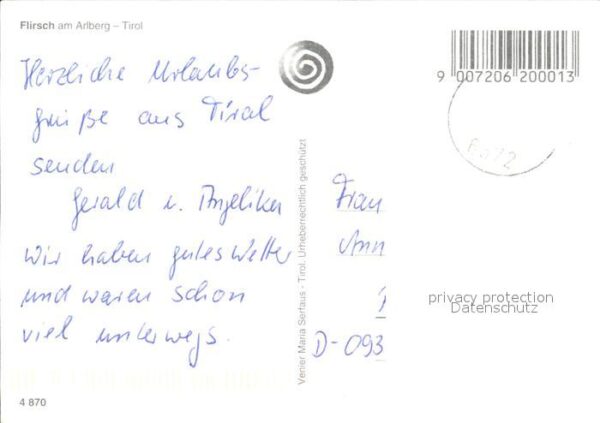 Flirsch am Arlberg – Tirol
Herzliche Urlaubs-
grüße aus Tirol
senden
Gerald u. Angelika
wir haben gutes Wetter
und waren schon
viel unterwegs.
4 870
Venier Maria Serfaus - Tirol. Urheberrechtlich geschützt
9 007206 200013
Frau
Ann
D-093
privacy protection
Datenschutz